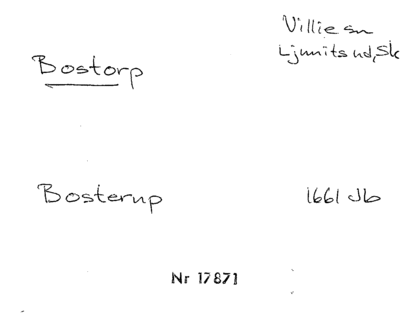 Villie sn
Ljunits hd, Sk
Bostorp
Bosterup 1661 Jb
Nr 17871